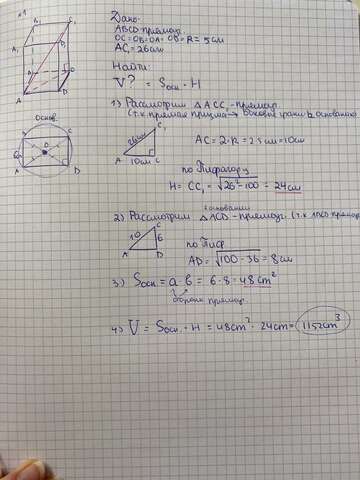 №1
Дано:
ABCD-прямоуг.
OC=OB=OA=OB=R=5см
AC₁=26см
Найти:
V? = Sосн·H
1) Рассмотрим △ACC₁-прямоуг.
(т.к прямая призма→ боковые грани ⊥ основанию)
26см
C₁
A 10см C
AC=2·R=2·5см=10см
по Пифагору
H=CC₁=√26²-100=24см
основ.
A B C D
6
O
2) Рассмотрим △ACD-прямоуг. (т.к ABCD прямоуг
основании
10 C 6
A D
по Пиф
AD=√100-36=8см
3) Sосн=a·b=6·8=48см²
стороны прямоуг
4) V=Sосн·H=48см²·24см=1152см³